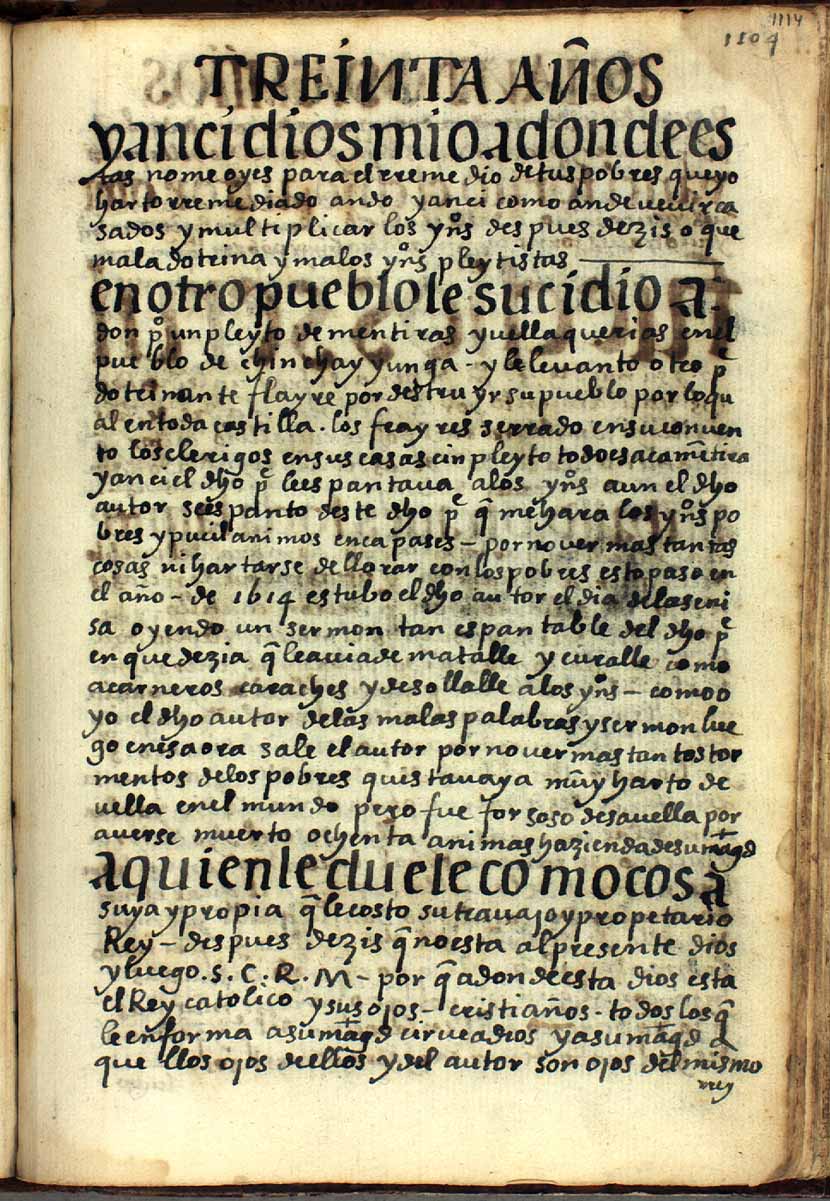 1114
1104
TREINTA AÑOS
yanci dios mio adonde es
tas no me oyes para el rremedio de tus pobres que yo
harto rremediado ando yanci como an de vevir ca
sados y multiplicar los yn̊s despues dezis o que
mala dotrina y malos yn̊s pleytistas
en otro pueblo le sucidio a
don pº un pleyto de mentiras y vellaquerias en el
pueblo de chinchay yunga - y le levanto otro pe
dotrinante flayre por destruyr su pueblo por lo qu
al en toda castilla . los frayres serrado en su conven
to los clerigos en sus casas cin pleyto todo es aca mẽtira
yanci el dho pe les pantava a los yn̊s aun el dho
autor se espanto deste dho pe q̃ me hara los yn̊s po
bres y pucilanimos encapases - por no ver mas tantas
cosas ni hartarse de llorar con los pobres esto paso en
el año - de 1614 estubo el dho autor el dia de la seni
sa oyendo un sermon tan espantable del dho pe
en que dezia q̃ le avia de matalle y curalle como
a carneros caraches y desollalle a los yn̊s - como o
yo el dho autor de las malas palabras y sermon lue
go en esa ora sale el autor por no ver mas tantos tor
mentos de los pobres qu estava ya muy harto de
vella en el mundo pero fue forsoso desavella por
averse muerto ochenta animas hazienda de su magd
a quien le duele como cosa
suya y propia q̃ le costo su travajo y propetario
Rey - despues dezis q̃ no esta al presente dios
y luego . S . C : R . M - por q̃ adonde esta dios esta
el Rey catolico y sus ojos - cristiaños - todos los q̃
le enforma a su magd cirve a dios y a su magd a
quellos ojos dellos y del autor son ojos del mismo
rrey